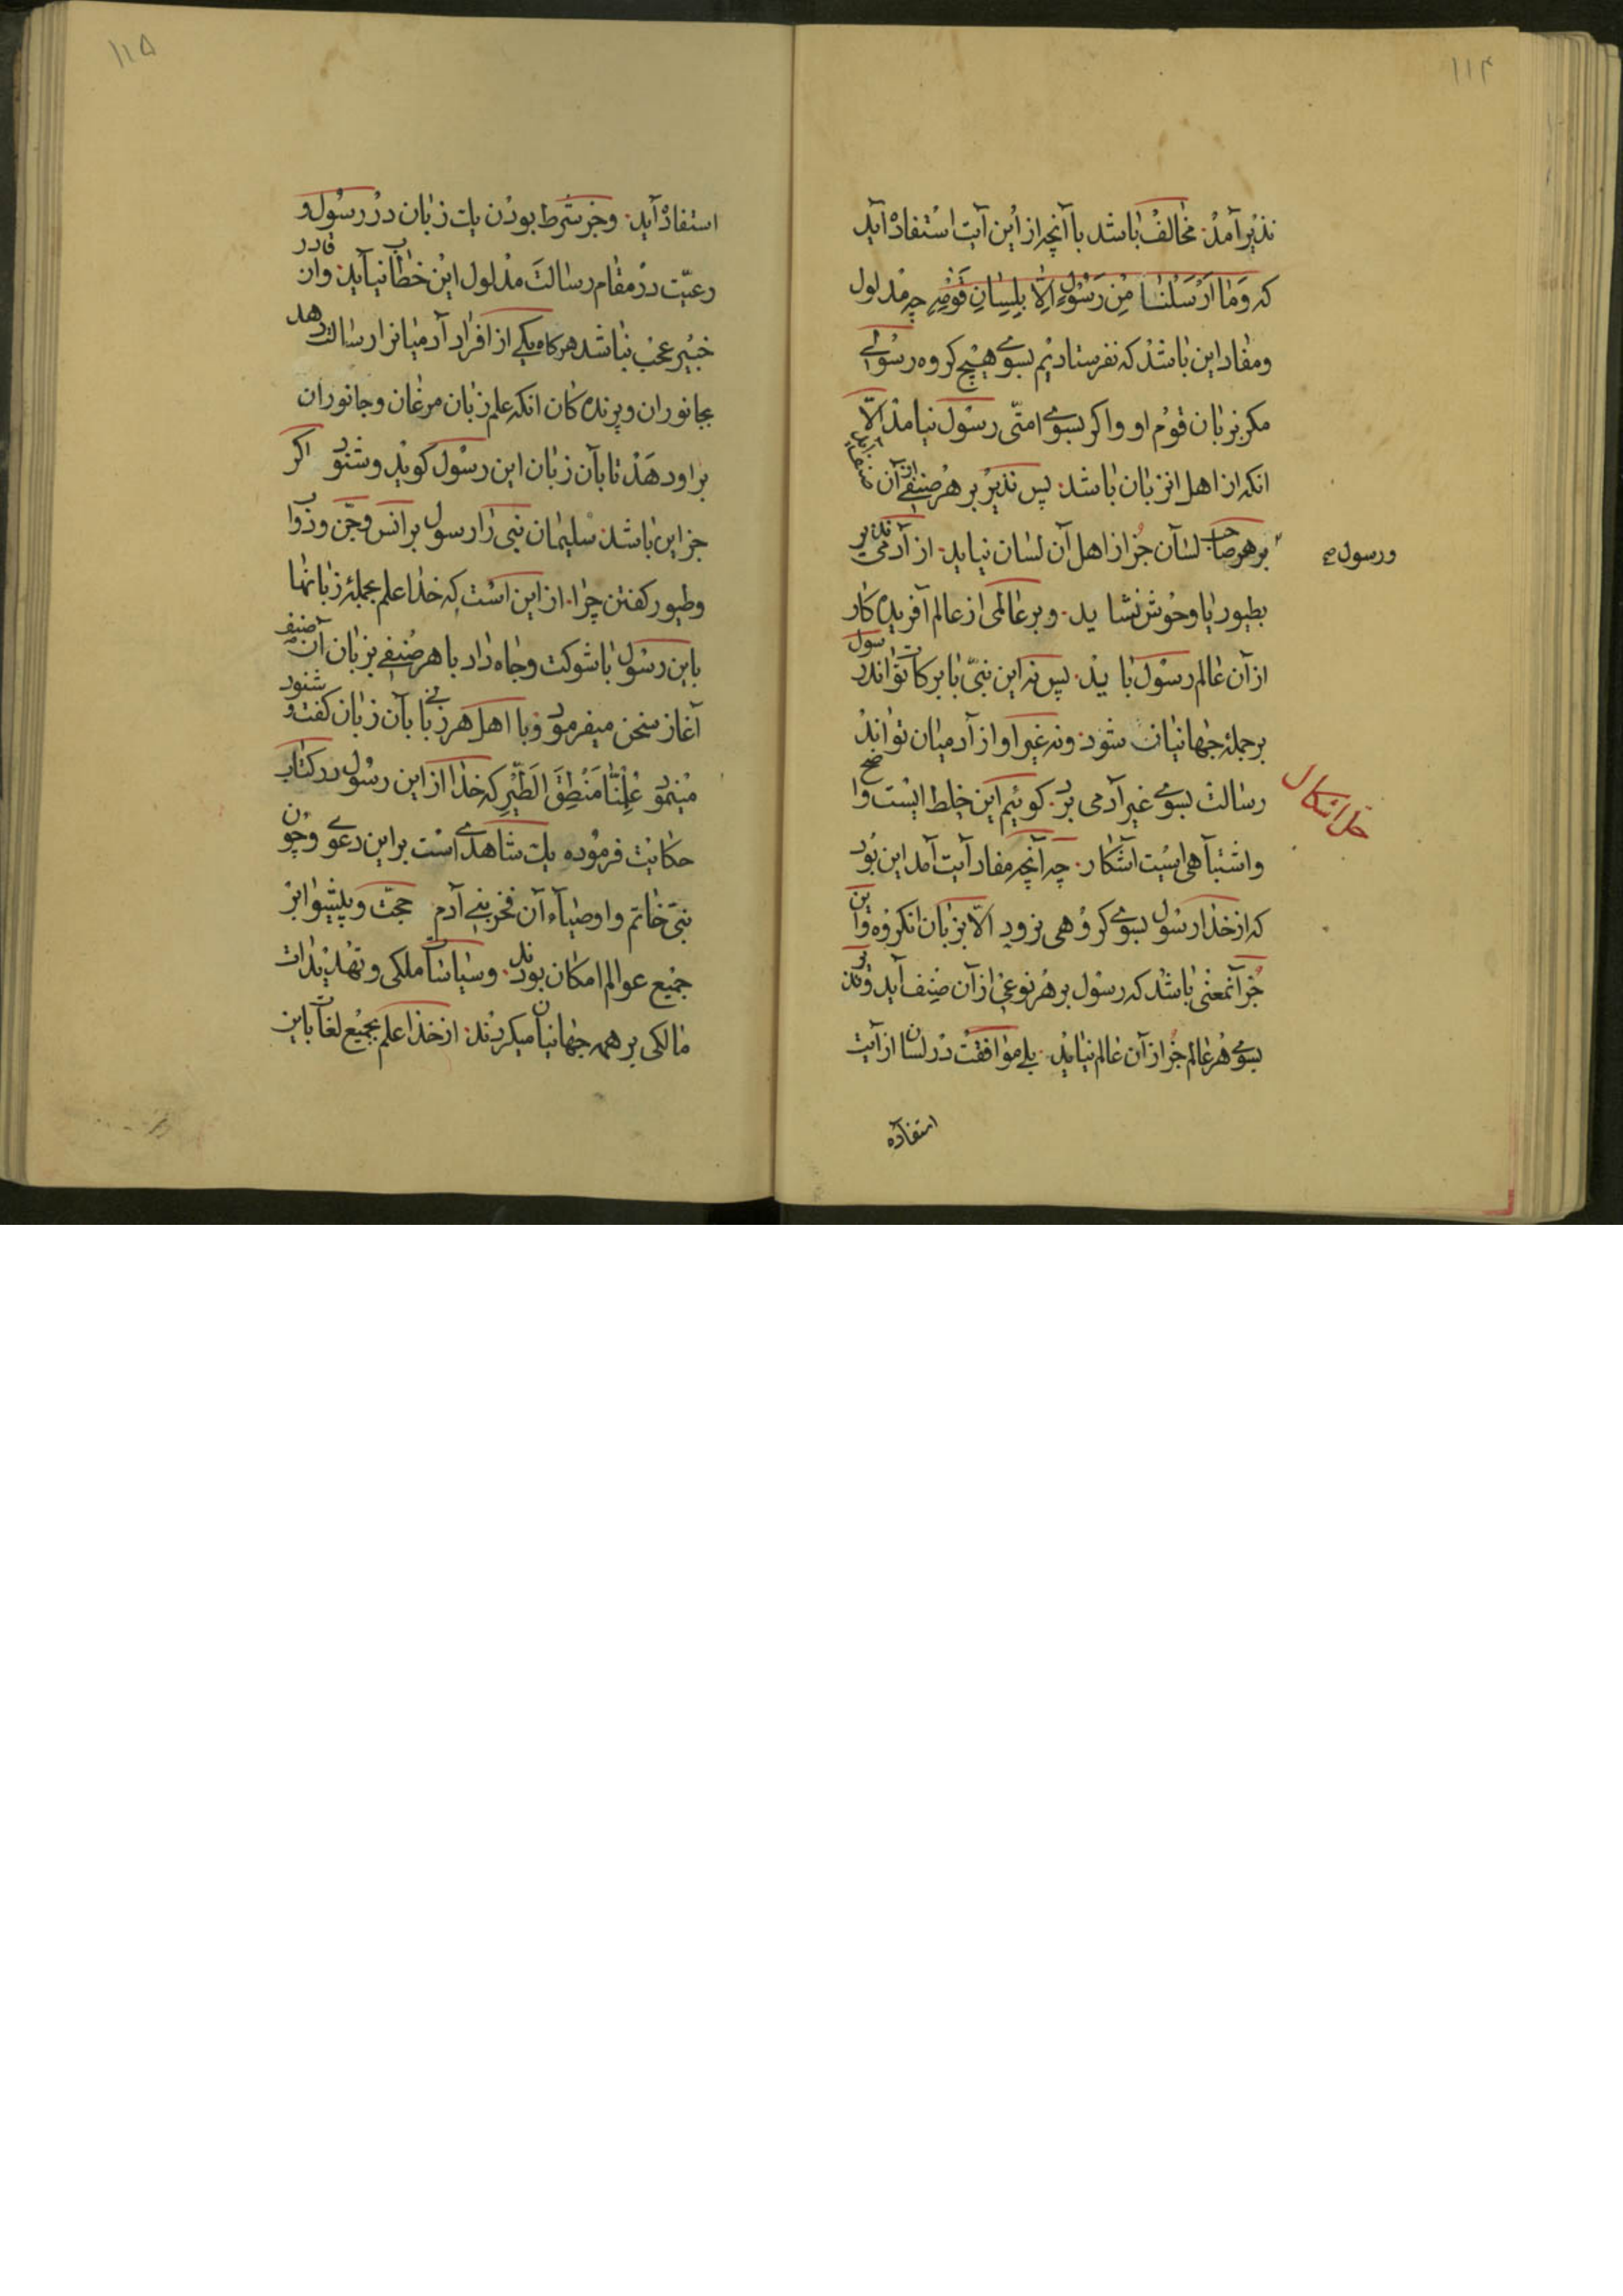 ۱۱۴
نذیر آمد مخالف باشد با آنچه از این آیت استفاد آید
که وَمٰا اَرْسَلْنٰا مِنْ رَسُولٍ اِلّا بِلِسٰانِ قَوْمِهِ چه مدلول
ومفاد این باشد که نفرستادیم بسوی هیچ کروه رسولے
مکر بزبان قوم او واکر بسوی امتی رسول نیامد الّا
انکه از اهل انزبان باشد پس نذیر بر هر صنفے از آن
بر هر صاحب لسان جز از اهل آن لسان نیاید از آدمی نذیر
ورسول
بطیور یا وحوش نشاید و بر عالمی از عالم آفریده کار
از آن عالم رسول باید پس نه این نبی با برکات تواند رسول
بر جمله جهانیان شود ونه غیر او از آدمیان تواند
رسالت بسوی غیر آدمی برد کوئیم این خلط ایست واضح
حل اشکال
واشتباهی ایست آشکار چه آنچه مفاد آیت آمد این بود
که از خدا رسول بسوی کروهی نرود الّا بزبان انکروه واین
جز آنمعنی باشد که رسول بر هر نوعی از آن صنف آید ونذیر
بسوی هر عالم جز از آن عالم نیاید بلے موافقت در لسان از آیت
استفاده
۱۱۵
استفاد آید وجز شرط بودن یک زبان در رسول و
رعیت در مقام رسالت مدلول این خطاب نیاید وان قادر
خبیر عجب نباشد هرکاه یکے از افراد آدمیانرا رسالت دهد
بجانوران وپرنده کان انکه علم زبان مرغان وجانوران
براو دهد تا بآن زبان این رسول کوید وشنود اکر
جز این باشد سلیمان نبی را رسول بر انس وجن ودواب
وطیور کفتن چرا از این است که خدا علم بجمله زبانها
باین رسول باشوکت وجاه داد با هر صنفے بزبان آن صنف
آغاز سخن میفرمود وبا اهل هر زبانے بآن زبان کفت و شنود
مینمود عُلِّمْنٰا مَنْطِقَ الطَّیْرِ که خدا از این رسول در کتاب
حکایت فرموده یک شاهدی است براین دعوے وچون
نبی خاتم واوصیاء آن فخر بنے آدم حجت وپیشوا بر
جمیع عوالم امکان بودند وسیاسات ملکی وتهدیدات
مالکی بر همه جهانیان میکردند از خدا علم بجمیع لغات باین